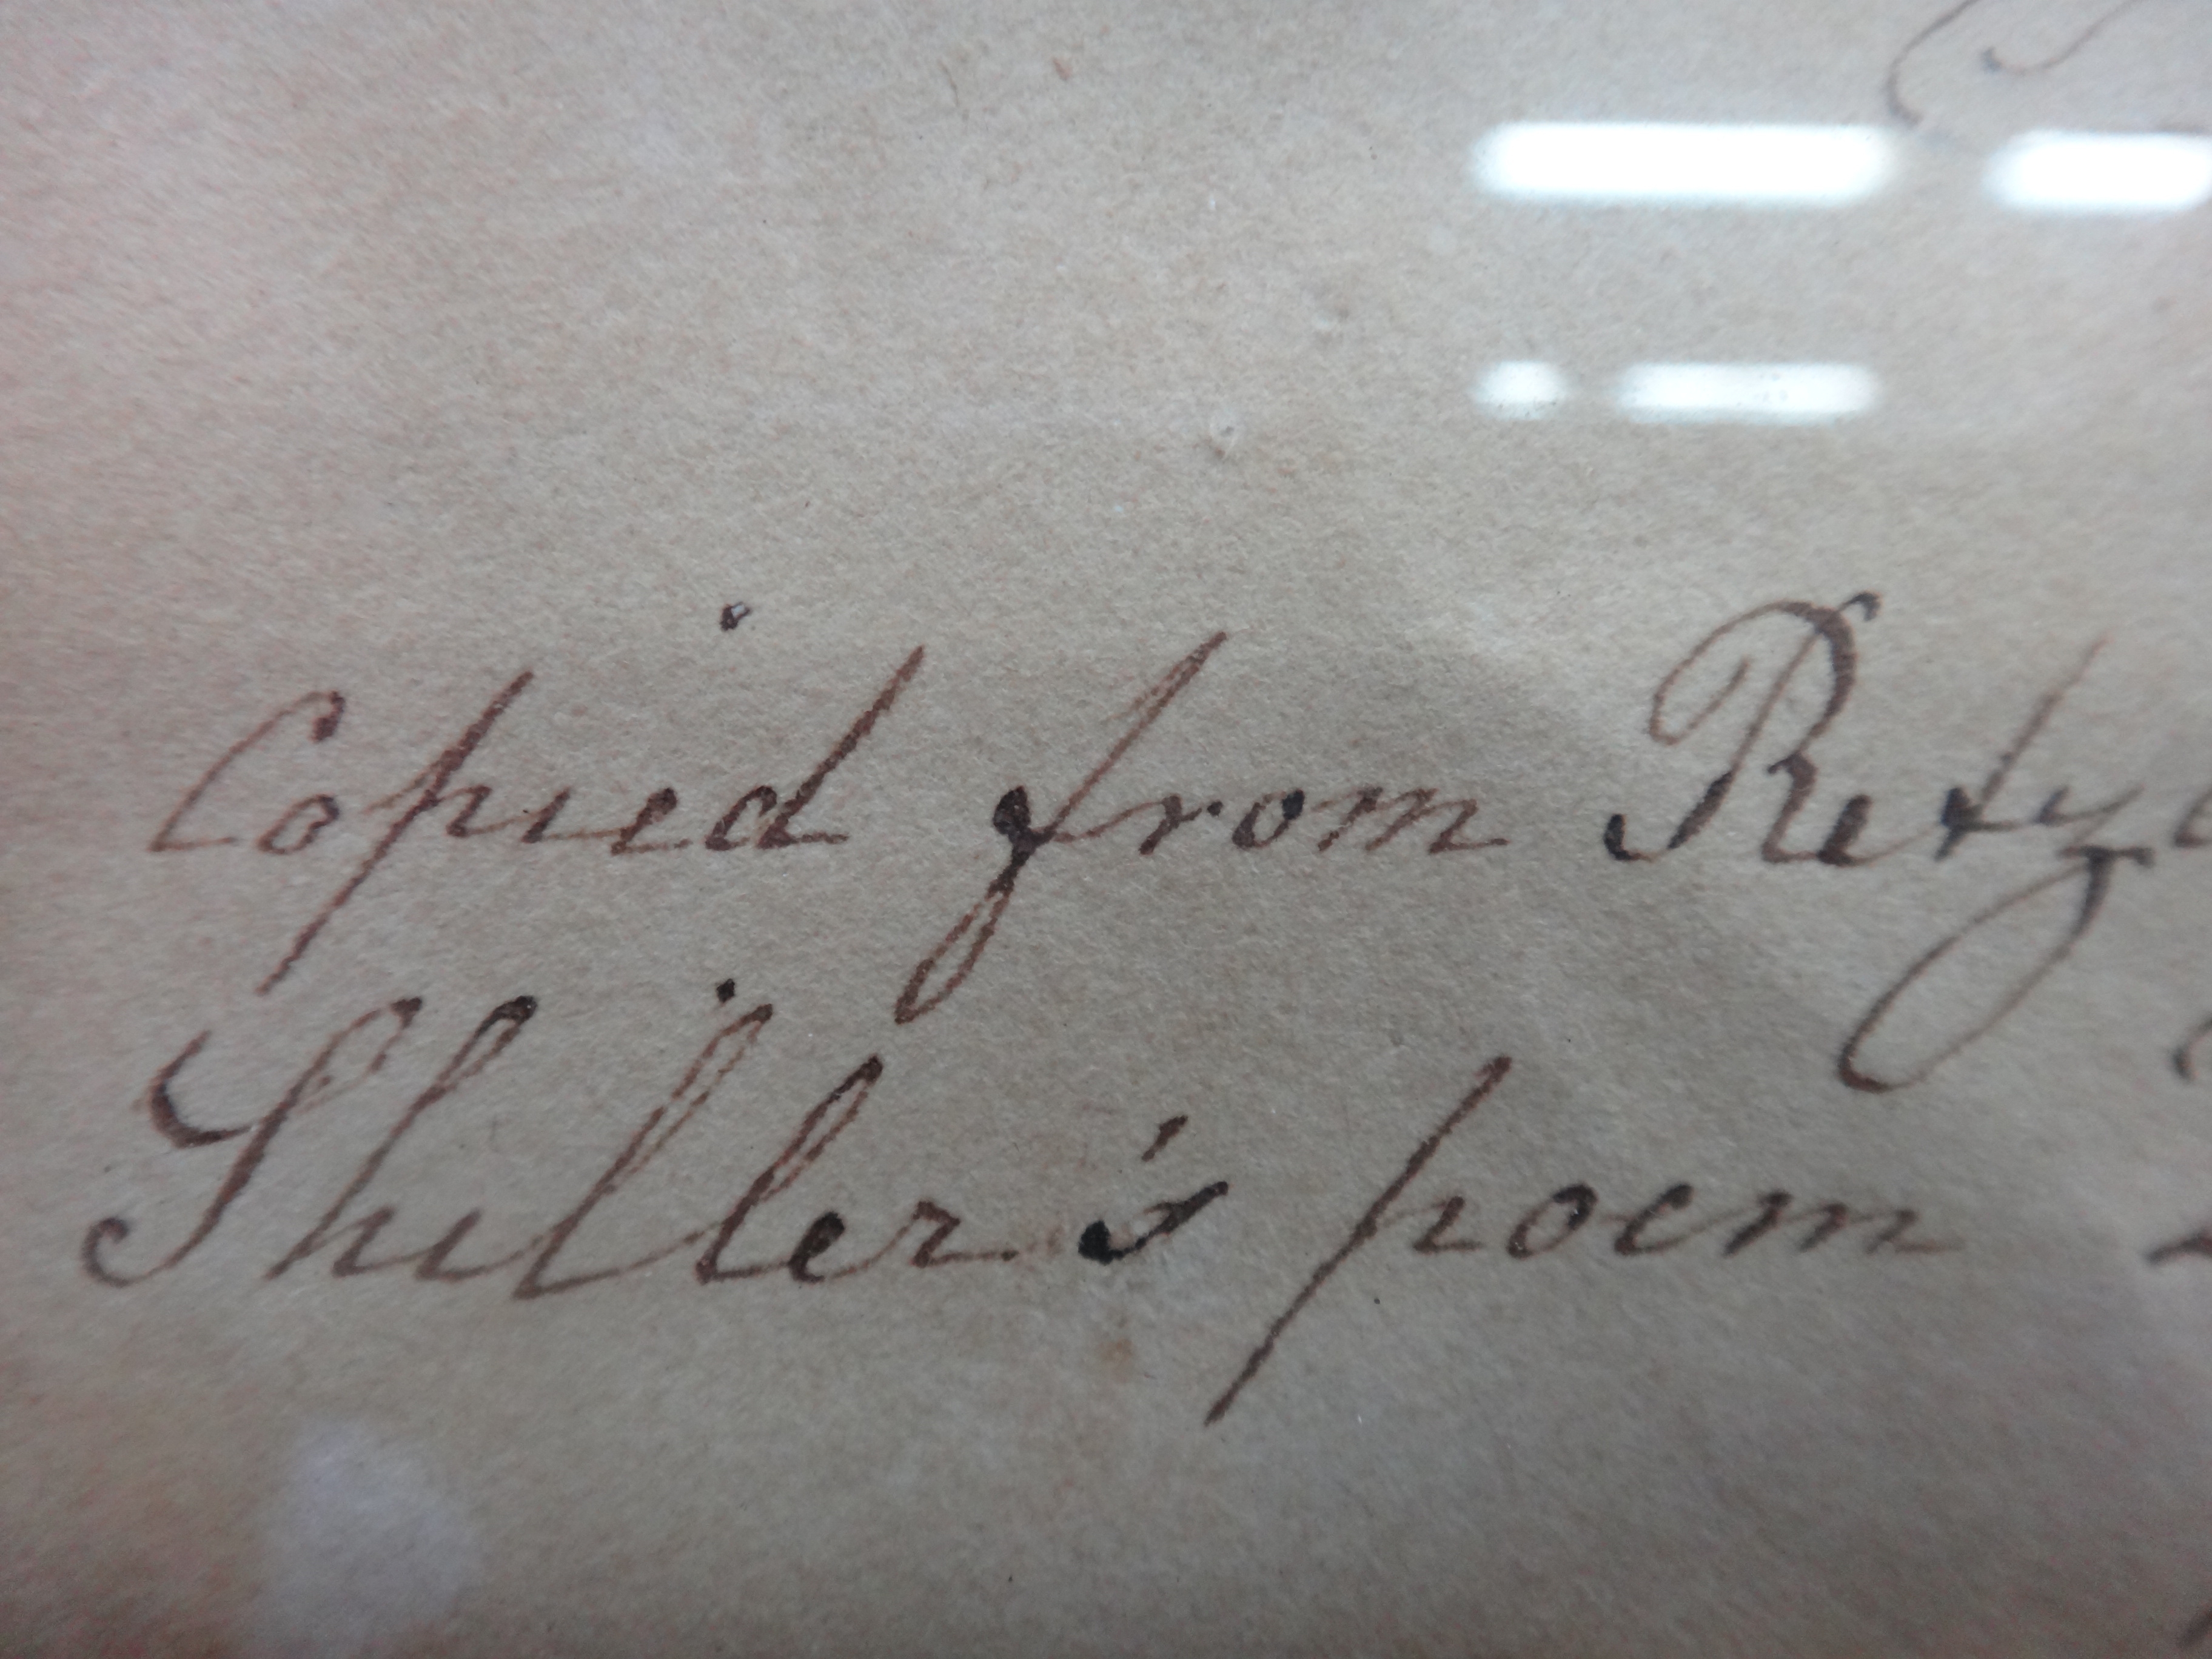 Copied from Retz
Shiller's poem